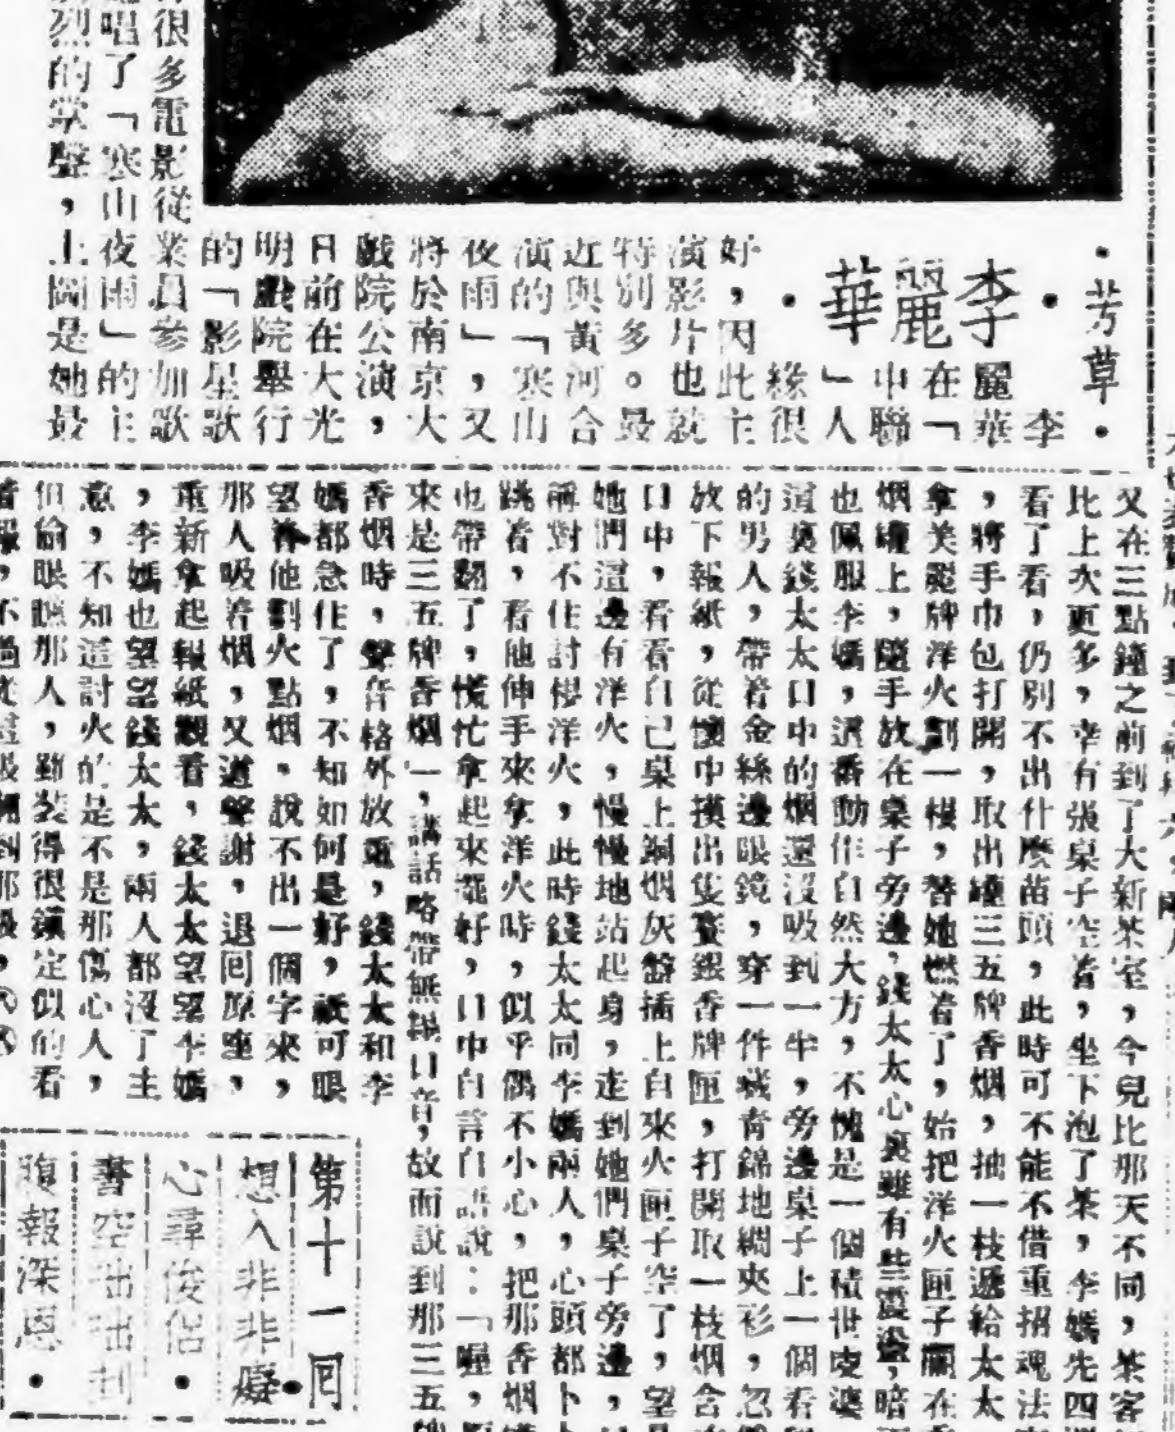 ·芳草·
·李麗華·
李
麗華
在「
中聯
」人
緣很
好，因此主
演影片也就
特別多。最
近與黃河合
演的「寒山
夜雨」，又
將於南京大
戲院公演，
日前在大光
明戲院舉行
的「影星歌
很多電影從業員參加歌
唱了「寒山夜雨」的主
烈的掌聲，上圖是她最
又在三點鐘之前到了大新茶室，今兒比那天不同，茶客
比上次更多，幸有張桌子空着，坐下泡了茶，李媽先四
看了看，仍別不出什麼苗頭，此時可不能不借重招魂法
，將手巾包打開，取出罐三五牌香烟，抽一枝遞給太太
拿美麗牌洋火劃一根，替她燃着了，始把洋火匣子擱在
烟罐上，隨手放在桌子旁邊，錢太太心裏雖有些震盪，暗
也佩服李媽，這番動作自然大方，不愧是一個積世虔婆
道裏錢太太口中的烟還沒吸到一半，旁邊桌子上一個看
的男人，帶着金絲邊眼鏡，穿一件藏青錦地綢夾衫，忽
放下報紙，從懷中摸出隻銀香牌匣，打開取一枝烟含
口中，看看自己桌上銅烟灰盤插上自來火匣子空了，望
她們這邊有洋火，慢慢地站起身，走到她們桌子旁邊，
稱對不住討根洋火，此時錢太太同李媽兩人，心頭都卜
跳着，看他伸手來拿洋火時，似乎偶不小心，把那香烟
也帶翻了，慌忙拿起來擺好，口中自言自語說：「喔，
來是三五牌香烟」，講話略帶無錫口音，故而說到那三五
香烟時，聲音格外放重，錢太太和李
媽都急住了，不知如何是好，祇可眼
望着他劃火點烟。說不出一個字來，
那人吸着烟，又道聲謝，退回原座，
重新拿起報紙觀看，錢太太望望李媽
，李媽也望望錢太太，兩人都沒了主
意，不知道討火的是不是那傷心人，
但偷眼瞧那人，雖裝得很鎮定似的看
第十一回
想入非非癡
心尋俊侶·
書空咄咄
報深恩·